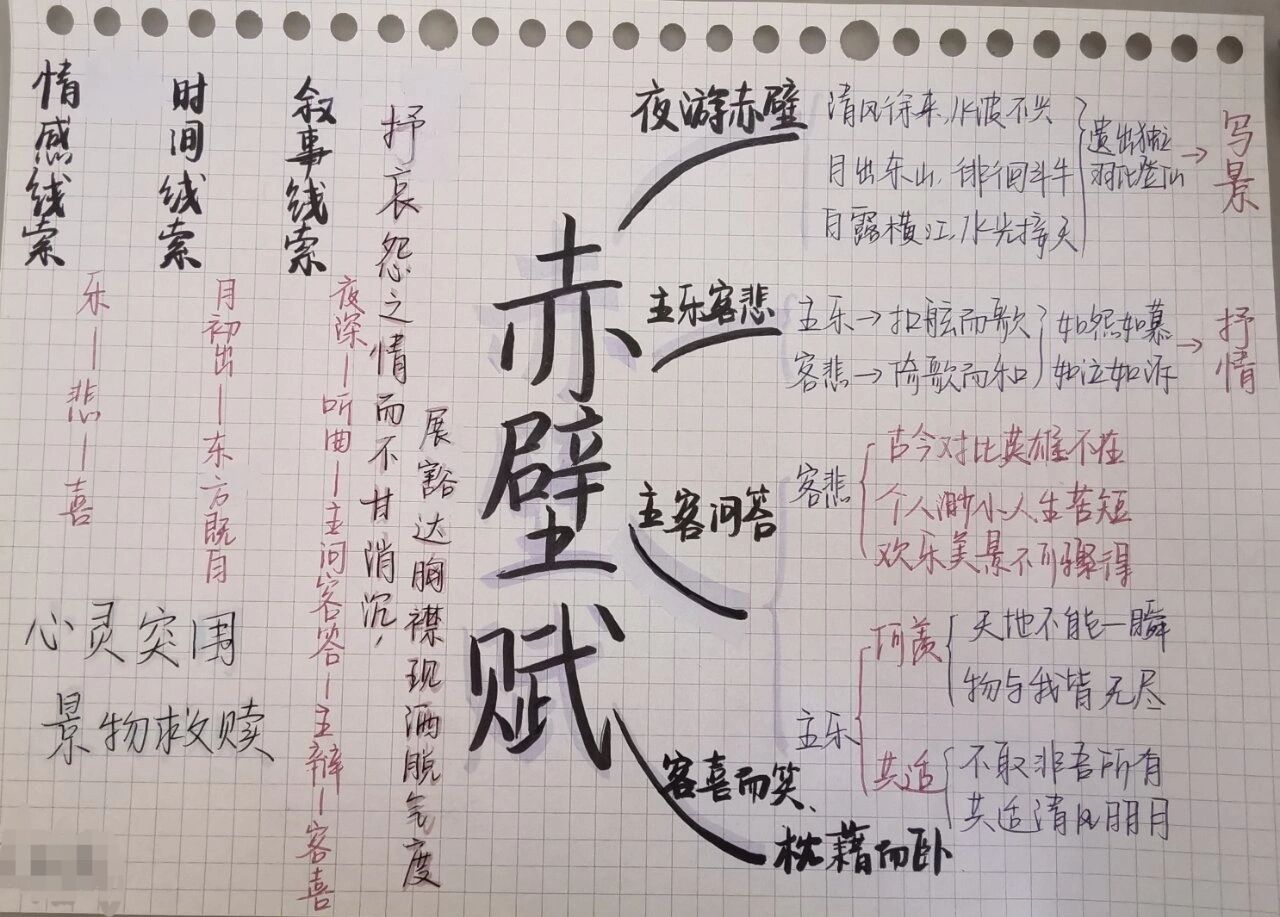 情感线索
乐—悲—喜
时间线索
月初出—东方既白
叙事线索
夜深—听曲—主问客答—主辩—客喜
抒哀怨之情而不甘消沉，
展豁达胸襟现洒脱气度
心灵突围
景物救赎
赤壁赋
夜游赤壁
清风徐来，水波不兴
月出东山，徘徊斗牛
白露横江，水光接天
遗世独立
羽化登仙
→写景
主乐客悲
主乐→扣舷而歌
客悲→倚歌而和
如怨如慕
如泣如诉
→抒情
主客问答
客悲
古今对比英雄不在
个人渺小人生苦短
欢乐美景不可骤得
主乐
何羡
天地不能一瞬
物与我皆无尽
共适
不取非吾所有
共适清风明月
客喜而笑、
枕藉而卧